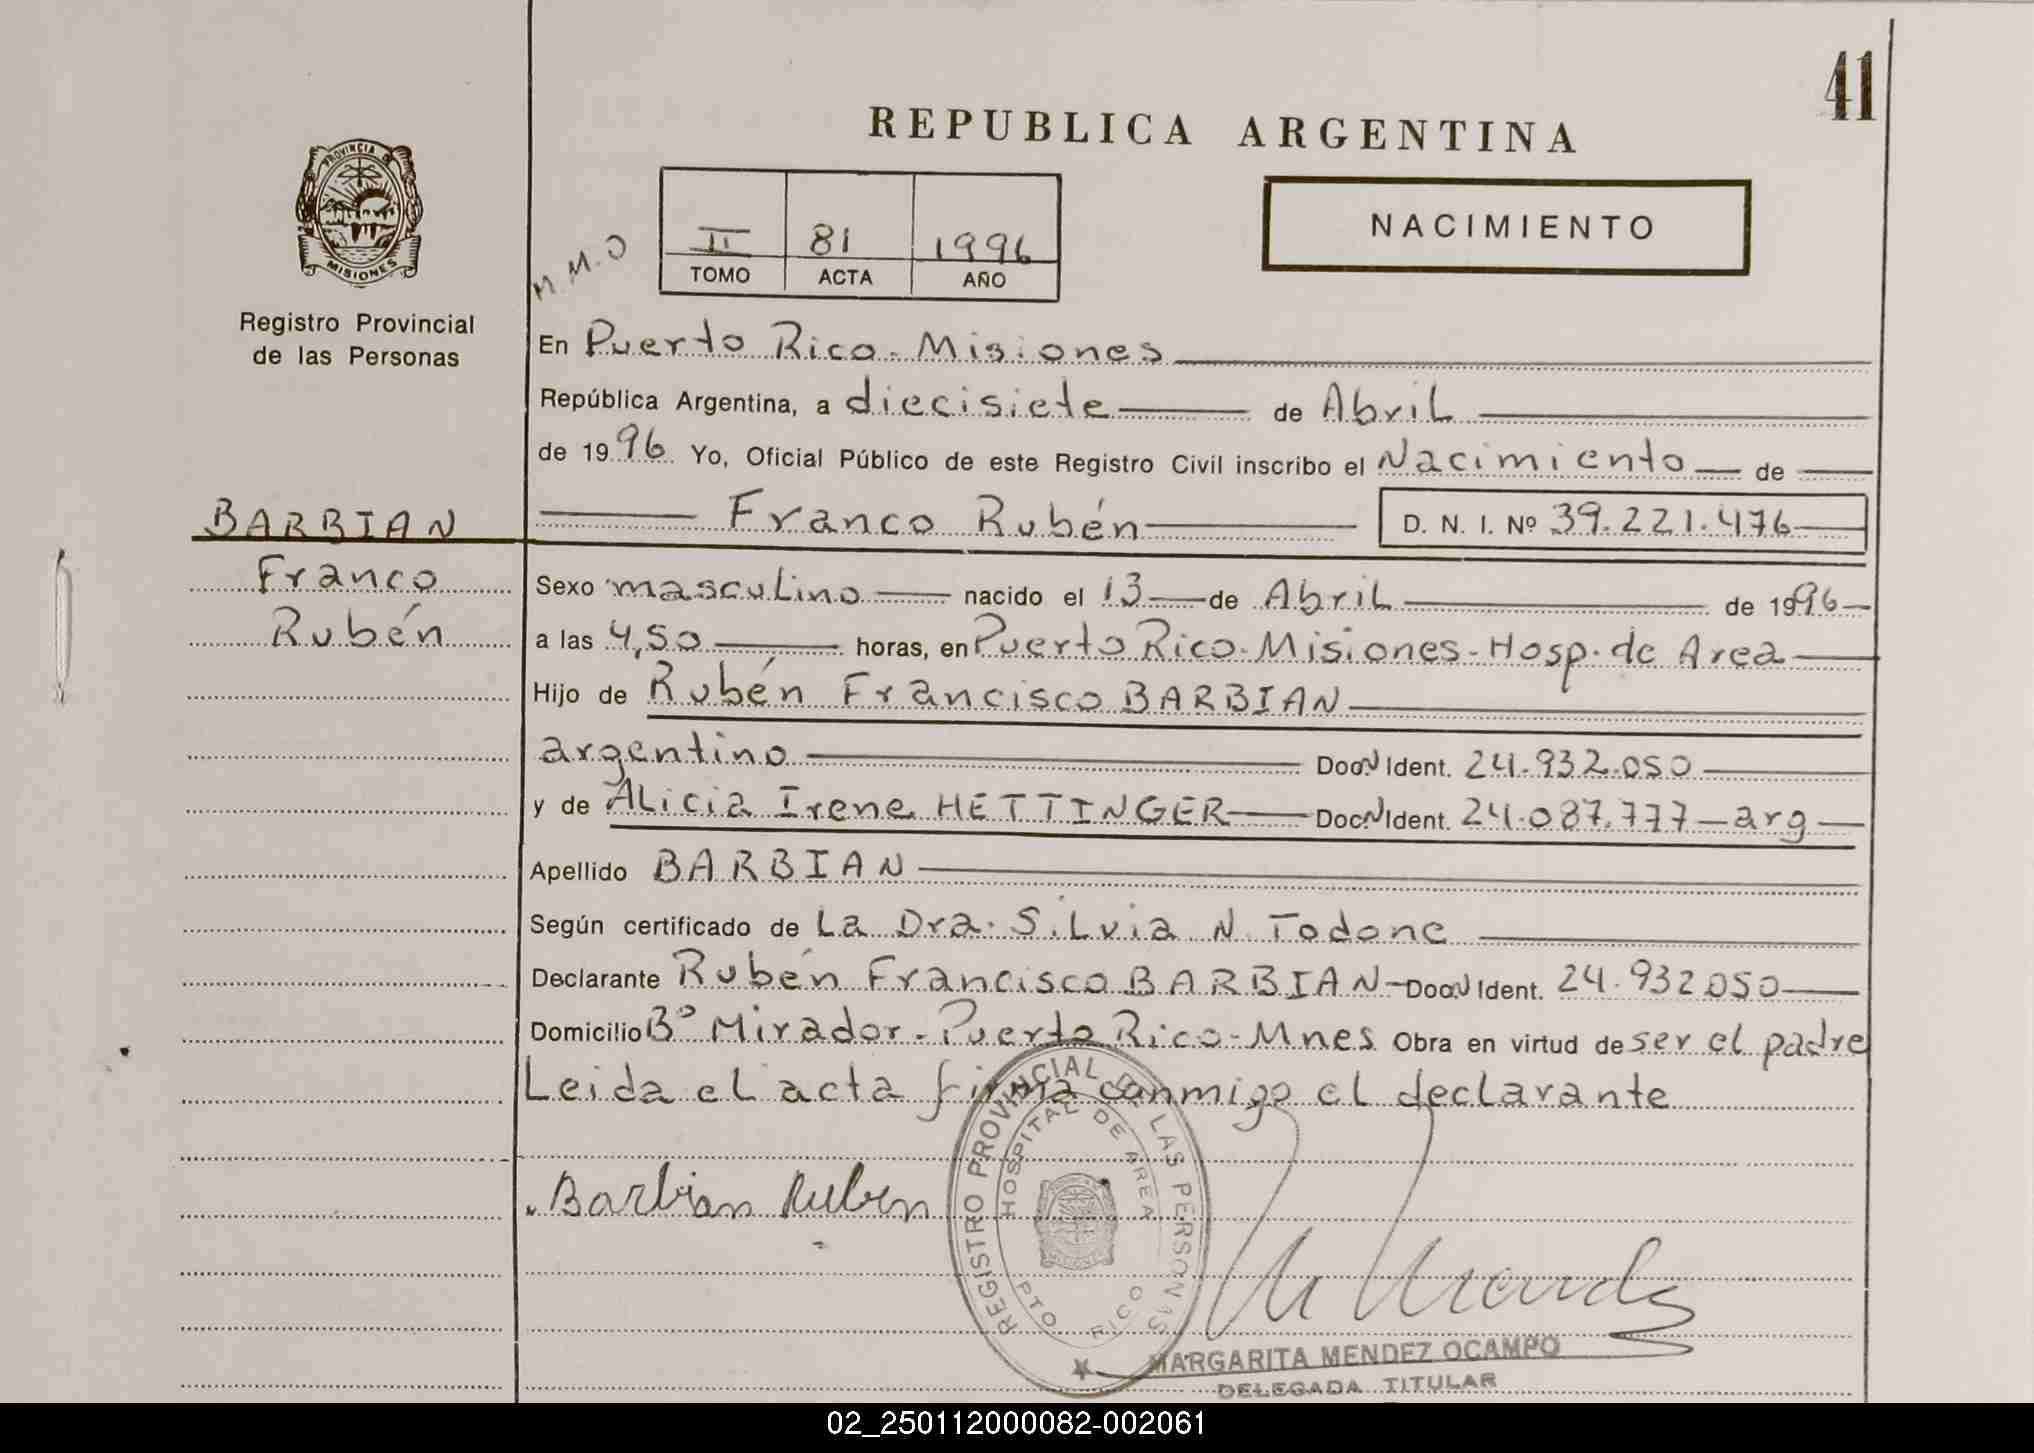 41
REPUBLICA ARGENTINA
PROVINCIA DE
MISIONES
Registro Provincial
de las Personas
II 81 1996
TOMO ACTA AÑO
NACIMIENTO
M.M.O
En Puerto Rico - Misiones
República Argentina, a diecisiete de Abril
de 1996 Yo, Oficial Público de este Registro Civil inscribo el Nacimiento de
BARBIAN Franco Rubén D. N. I. Nº 39.221.476
Franco Sexo masculino nacido el 13 de Abril de 1996
Rubén a las 4,50 horas, en Puerto Rico - Misiones - Hosp. de Area
Hijo de Rubén Francisco BARBIAN
argentino Doc. N Ident. 24.932.050
y de Alicia Irene HETTINGER Doc. N Ident. 24.087.777 - arg
Apellido BARBIAN
Según certificado de La Dra. Silvia N. Todone
Declarante Rubén Francisco BARBIAN - Doc. N Ident. 24.932050
Domicilio Bº Mirador - Puerto Rico - Mnes Obra en virtud de ser el padre
Leida el acta firma conmigo el declarante
Barbian Ruben
REGISTRO PROVINCIAL DE LAS PERSONAS
HOSPITAL DE AREA
PTO RICO
MARGARITA MENDEZ OCAMPO
DELEGADA TITULAR
02_250112000082-002061